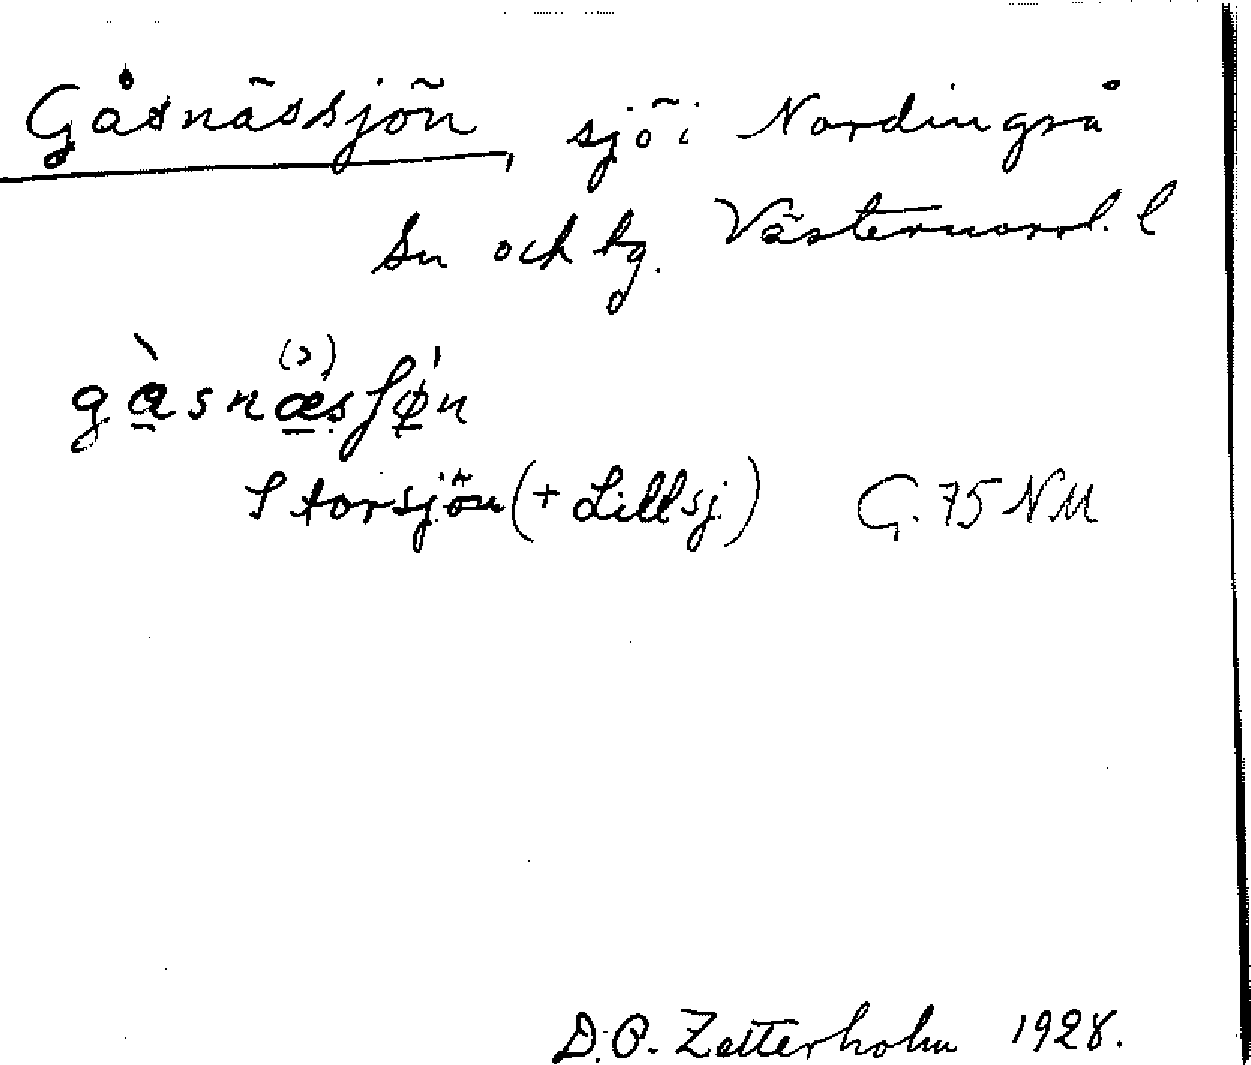 Gåsnässjön, sjö i Nordingrå
sn och tg. Västernorrl. l
gàsnæsʃøn
Storsjön (+ Lillsj.) G. 75 NM
D.O. Zetterholm 1928.